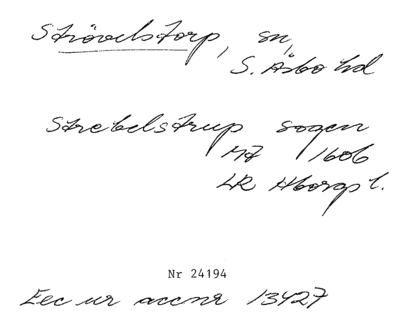 Strövelstorp, sn,
S. Åsbo hd
Strebelstrup sogen
M7 1606
LR Hborgs l.
Nr 24194
Exc ur accnr 13427